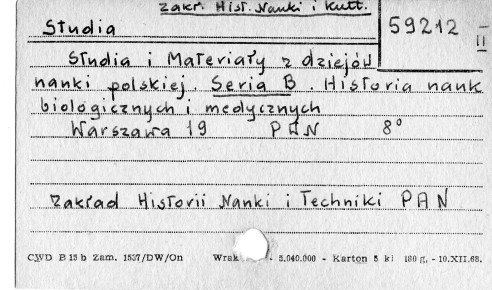 Zakr. Hist. Nauki i Kult.
Studia
59212
II
Studia i Materiały z dziejów
nauki polskiej. Seria B. Historia nauk
biologicznych i medycznych
Warszawa 19 PAN 8°
Zakład Historii Nauki i Techniki PAN
CWD B 15 b Zam. 1537/DW/On Wrak - 5.040.000 - Karton 5 kl 180 g. - 10.XII.68.